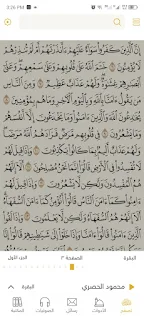 3:26 PM
إِنَّ ٱلَّذِينَ كَفَرُوا۟ سَوَآءٌ عَلَيْهِمْ ءَأَنذَرْتَهُمْ أَمْ لَمْ تُنذِرْهُمْ
لَا يُؤْمِنُونَ ٦ خَتَمَ ٱللَّهُ عَلَىٰ قُلُوبِهِمْ وَعَلَىٰ سَمْعِهِمْ وَعَلَىٰٓ
أَبْصَٰرِهِمْ غِشَٰوَةٌ وَلَهُمْ عَذَابٌ عَظِيمٌ ٧ وَمِنَ ٱلنَّاسِ
مَن يَقُولُ ءَامَنَّا بِٱللَّهِ وَبِٱلْيَوْمِ ٱلْءَاخِرِ وَمَا هُم بِمُؤْمِنِينَ ٨
يُخَٰدِعُونَ ٱللَّهَ وَٱلَّذِينَ ءَامَنُوا۟ وَمَا يَخْدَعُونَ إِلَّآ أَنفُسَهُمْ
وَمَا يَشْعُرُونَ ٩ فِى قُلُوبِهِم مَّرَضٌ فَزَادَهُمُ ٱللَّهُ مَرَضًا
وَلَهُمْ عَذَابٌ أَلِيمٌۢ بِمَا كَانُوا۟ يَكْذِبُونَ ١٠ وَإِذَا قِيلَ لَهُمْ
لَا تُفْسِدُوا۟ فِى ٱلْأَرْضِ قَالُوٓا۟ إِنَّمَا نَحْنُ مُصْلِحُونَ ١١ أَلَآ
إِنَّهُمْ هُمُ ٱلْمُفْسِدُونَ وَلَٰكِن لَّا يَشْعُرُونَ ١٢ وَإِذَا قِيلَ لَهُمْ
ءَامِنُوا۟ كَمَآ ءَامَنَ ٱلنَّاسُ قَالُوٓا۟ أَنُؤْمِنُ كَمَآ ءَامَنَ ٱلسُّفَهَآءُ
أَلَآ إِنَّهُمْ هُمُ ٱلسُّفَهَآءُ وَلَٰكِن لَّا يَعْلَمُونَ ١٣ وَإِذَا لَقُوا۟
ٱلَّذِينَ ءَامَنُوا۟ قَالُوٓا۟ ءَامَنَّا وَإِذَا خَلَوْا۟ إِلَىٰ شَيَٰطِينِهِمْ قَالُوٓا۟
البقرة الصفحة ٣ الجزء الأول
محمود الحصري البقرة
مصحف الأدوات رسائل الصوتيات المكتبة